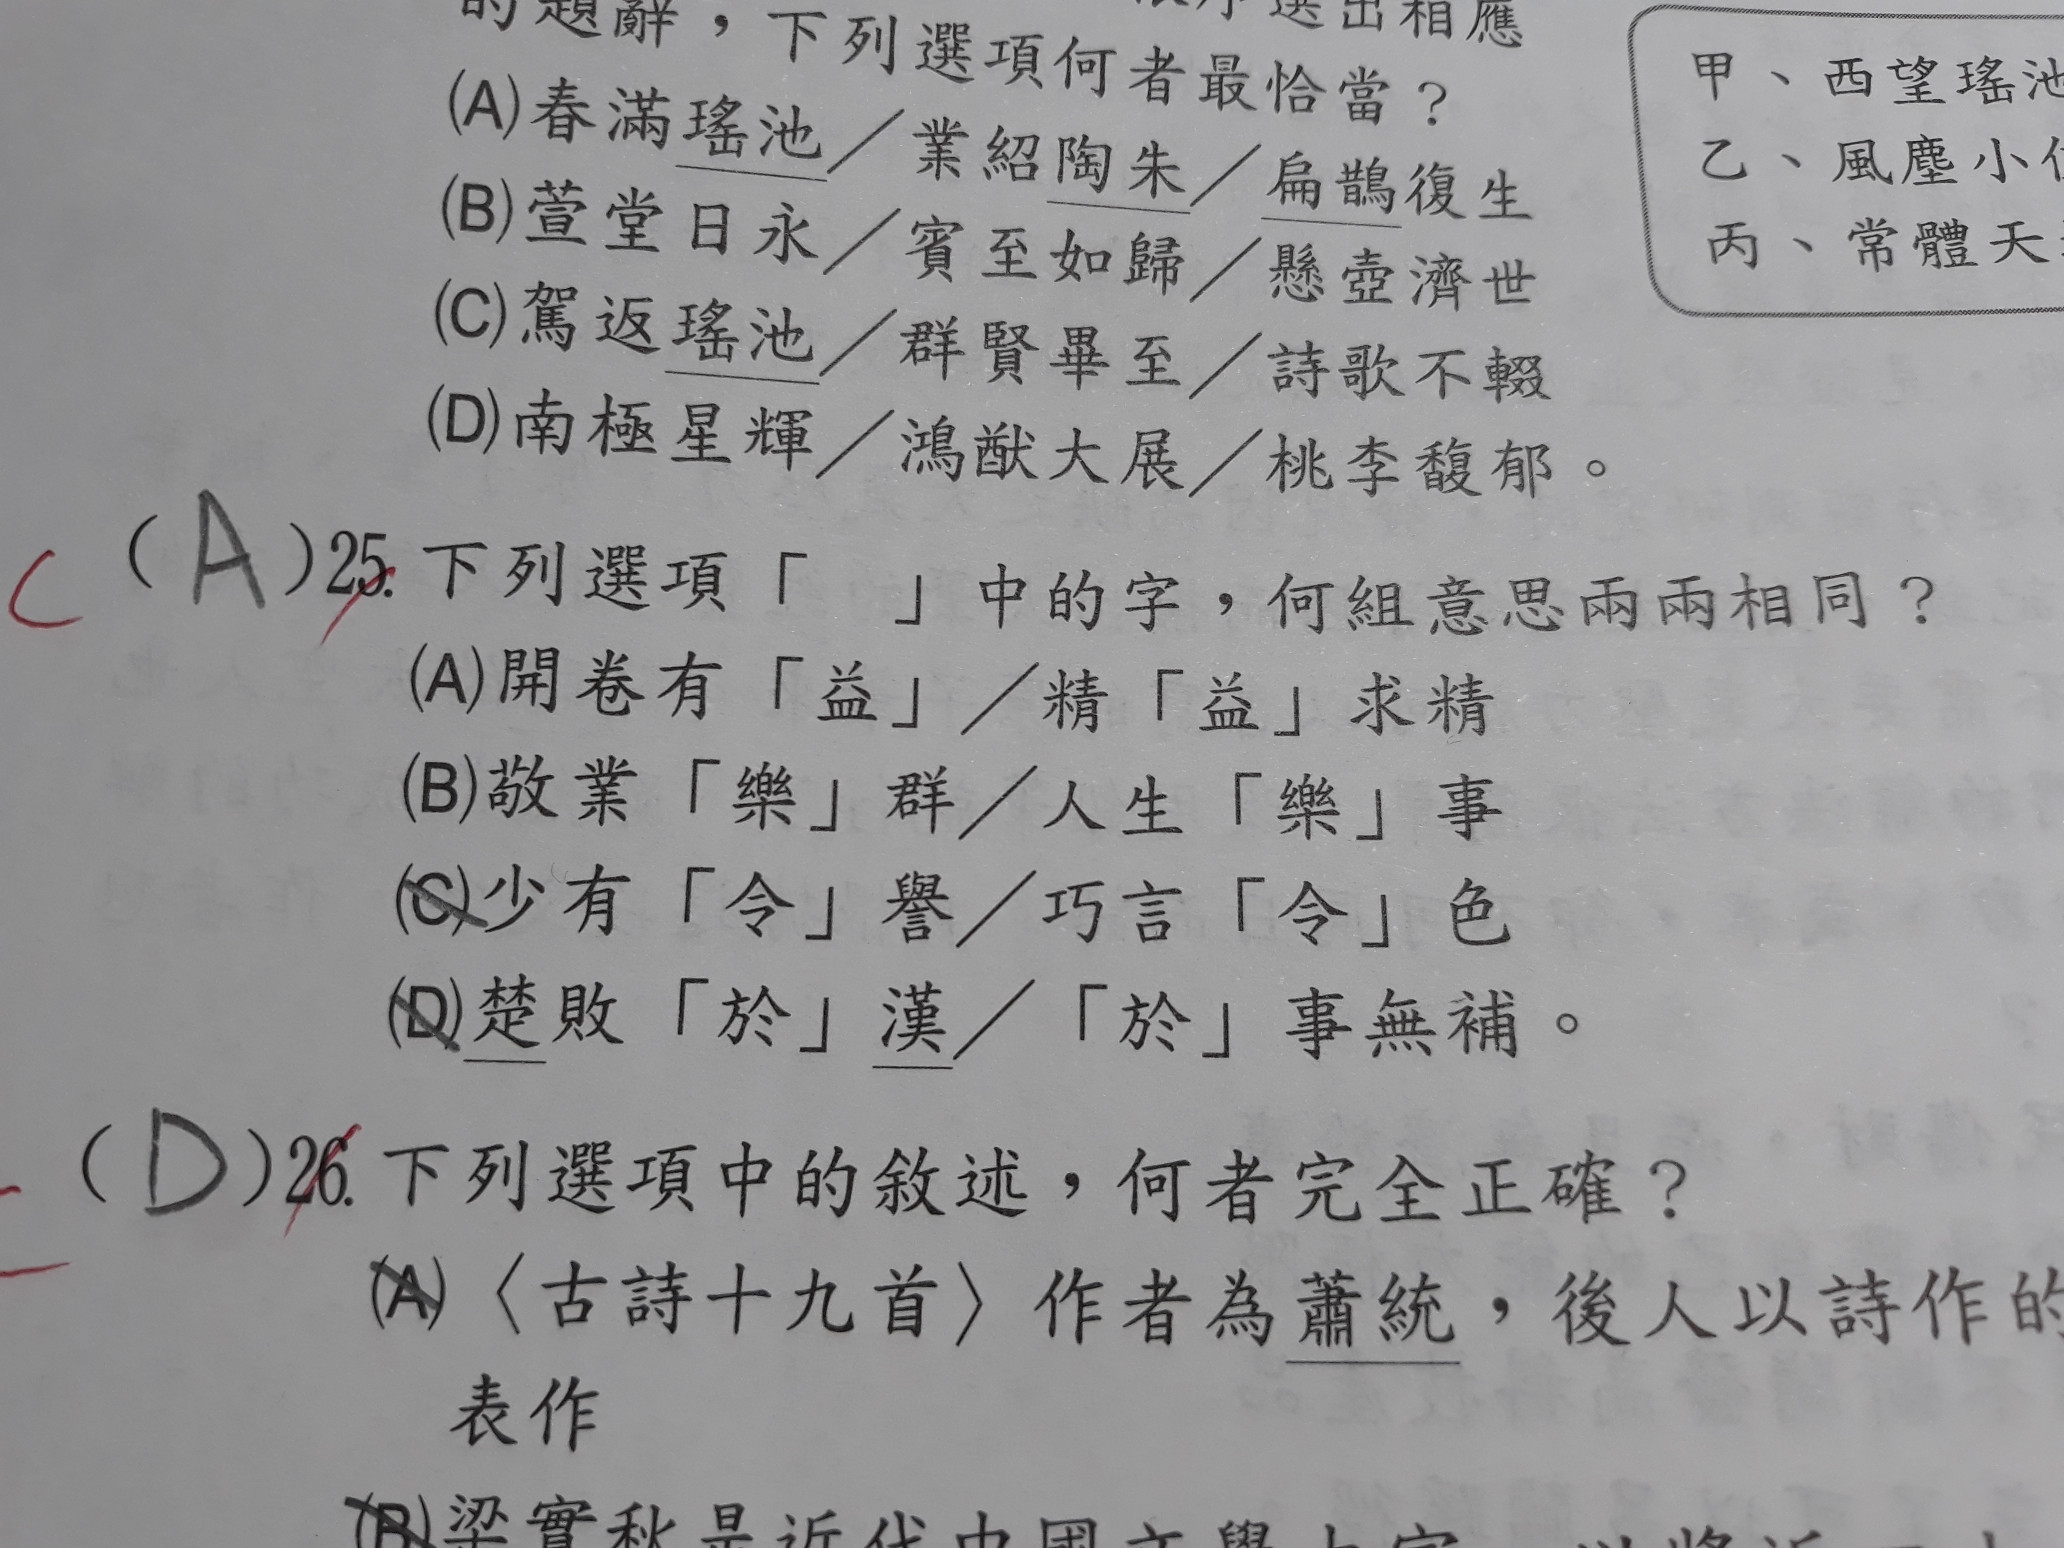 的題辭，下列選項何者最恰當？
選出相應
(A)春滿瑤池／業紹陶朱／扁鵲復生
(B)萱堂日永／賓至如歸／懸壺濟世
(C)駕返瑤池／群賢畢至／詩歌不輟
(D)南極星輝／鴻猷大展／桃李馥郁。
甲、西望瑤池
乙、風塵小
丙、常體天
C
(A)25.下列選項「　」中的字，何組意思兩兩相同？
(A)開卷有「益」／精「益」求精
(B)敬業「樂」群／人生「樂」事
(C)少有「令」譽／巧言「令」色
(D)楚敗「於」漢／「於」事無補。
(D)26.下列選項中的敘述，何者完全正確？
(A)〈古詩十九首〉作者為蕭統，後人以詩作的
表作
(B)梁實秋是近代中國文學大家